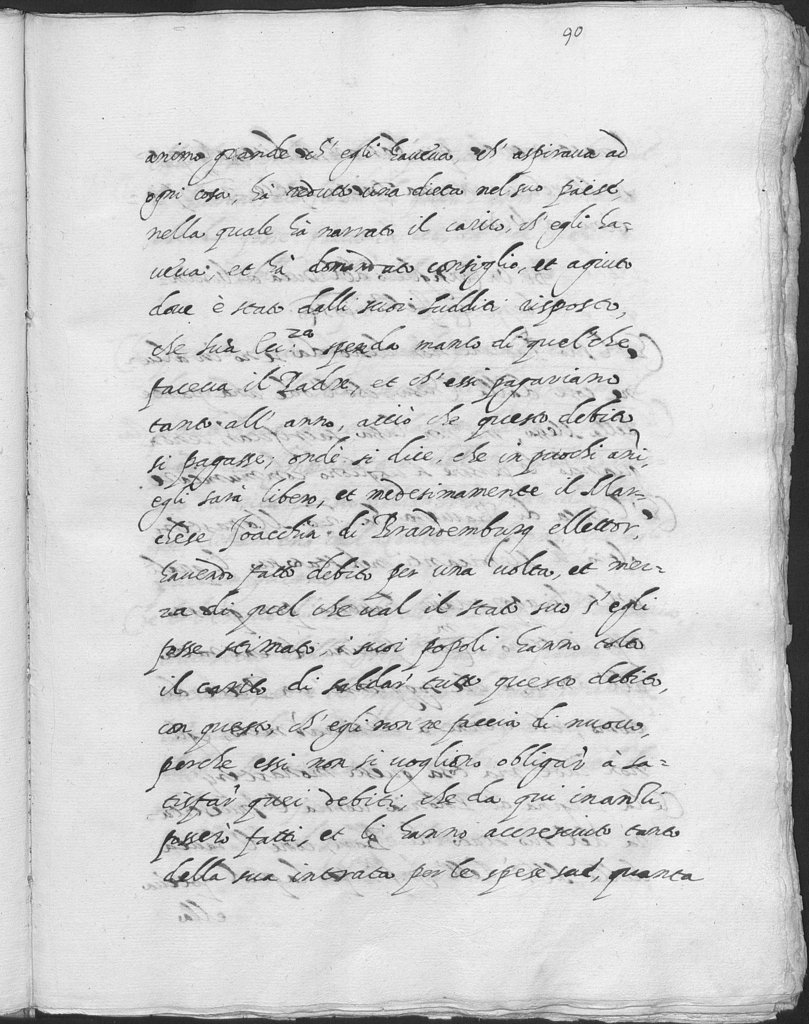 90
animo grande ch' egli haveva, ch' aspirava ad
ogni cosa, hà redutto una dieta nel suo paese,
nella quale hà narrato il carito, ch' egli ha-
veva, et hà domandato consiglio, et agiuto
dove è stato dalli suoi sudditi risposto,
che sua Ecc.za spenda manco di quel che
faceva il Padre, et ch' essi pagariano
tanto all' anno, acciò che questo debito
si pagasse, onde si dice, che in puochi anni
egli sarà libero, et medesimamente il Mar-
chese Joacchin di Brandemburg ellettor,
havendo fatto debito per una volta, et mez-
za di quel che val il stato suo s' egli
fosse stimato, i suoi popoli hanno tolto
il carito di saldar tutto questo debito,
con questo ch' egli non ne faccia di nuovo,
perche essi non si vogliono obligar à sa-
tisfar quei debiti, che da qui inanzi
fosserò fatti, et li hanno accresciuto tanto
della sua intrata per le spese sue, quanta